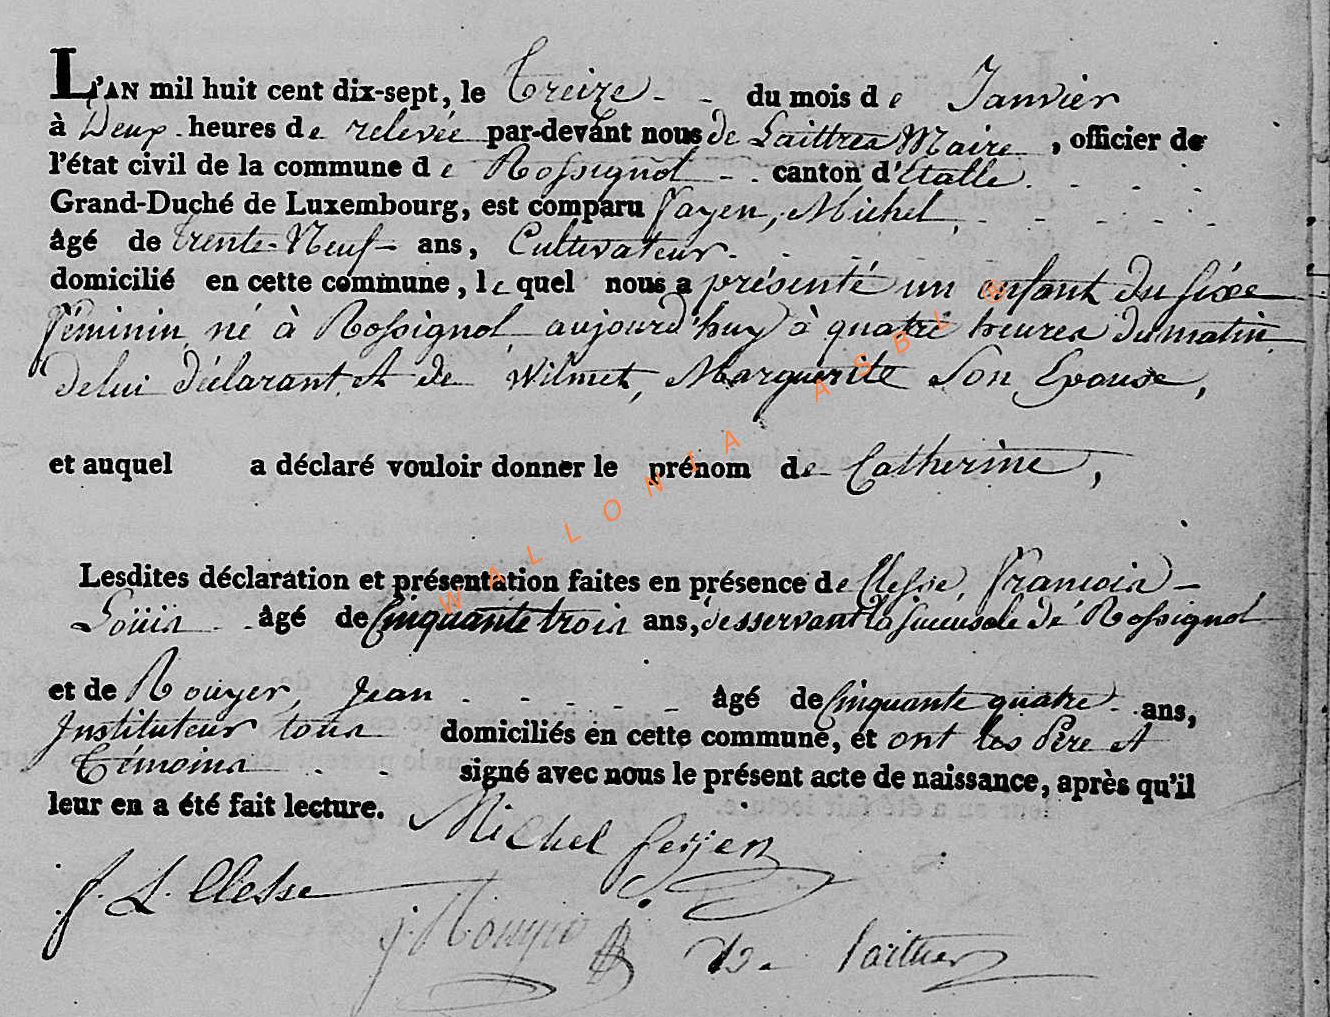 L'AN mil huit cent dix-sept, le Treize du mois de Janvier
à Deux heures de relevée par-devant nous de Laittres Maire, officier de
l'état civil de la commune de Rossignol canton d'Etalle
Grand-Duché de Luxembourg, est comparu Fayen, Michel,
âgé de trente-Neuf ans, Cultivateur
domicilié en cette commune, lequel nous a présenté un enfant du séxe
féminin, né à Rossignol aujourd'huy à quatre heures du matin
de lui déclarant et de Wilmet, Marguerite Son Epouse,
et auquel a déclaré vouloir donner le prénom de Catherine,
Lesdites déclaration et présentation faites en présence de Clesse, François
Loüis âgé de Cinquante trois ans, desservant la succursale de Rossignol
et de Rouyer, Jean âgé de Cinquante quatre ans,
Instituteur tous domiciliés en cette commune, et ont les Père et
Témoins signé avec nous le présent acte de naissance, après qu'il
leur en a été fait lecture.
Michel feyen
f. L. Clesse
j. Rouyer
De laittres
WALLONIA ASBL ©